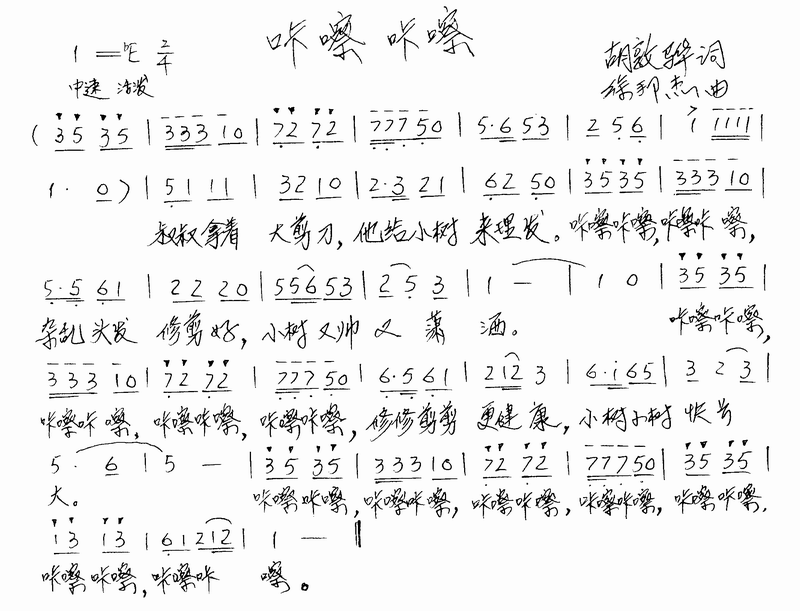 咔嚓咔嚓
1=♭E 2/4
中速 活泼
胡敦骅词
徐邦杰曲
(35 35 | 333 10 | 72 72 | 777 50 | 5·6 53 | 2 56 | i 1111 |
1· 0) | 51 11 | 32 10 | 2·3 21 | 62 50 | 35 35 | 333 10 |
叔叔拿着 大剪刀,他给小树 来理发。咔嚓咔嚓,咔嚓咔 嚓,
5·5 61 | 22 20 | 556 53 | 2 5 3 | 1 — | 1 0 | 35 35 |
杂乱头发 修剪好,小树又帅 又 潇 洒。 咔嚓咔嚓,
333 10 | 72 72 | 777 50 | 6·5 61 | 212 3 | 6·i 65 | 3 2 3 |
咔嚓咔 嚓,咔嚓咔嚓,咔嚓咔嚓,修修剪剪 更健 康,小树小树 快长
5· 6 | 5 — | 35 35 | 333 10 | 72 72 | 777 50 | 35 35 |
大。 咔嚓咔嚓,咔嚓咔嚓,咔嚓咔嚓,咔嚓咔嚓,咔嚓咔嚓,
13 13 | 61 212 | 1 — ‖
咔嚓咔嚓,咔嚓咔 嚓。